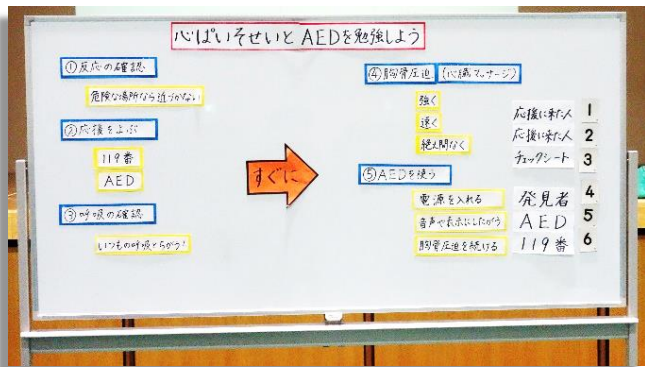 心ぱいそせいとAEDを勉強しよう
①反応の確認
危険な場所なら近づかない
②応援をよぶ
119番
AED
③呼吸の確認
いつもの呼吸とちがう!
すぐに
④胸骨圧迫 (心臓マッサージ)
強く
速く
絶え間なく
⑤AEDを使う
電源を入れる
音声や表示にしたがう
胸骨圧迫を続ける
応援に来た人 1
応援に来た人 2
チェックシート 3
発見者 4
AED 5
119番 6